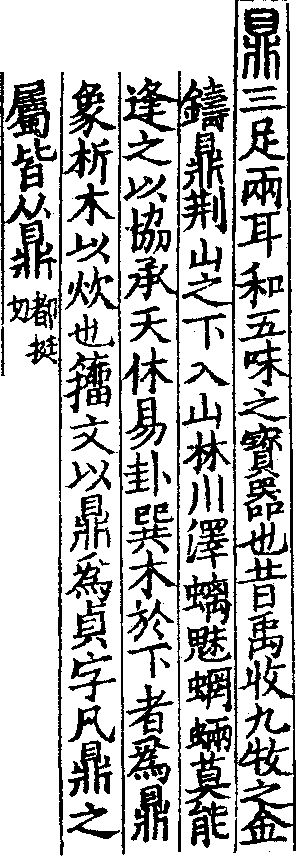 鼎三足兩耳和五味之寶器也昔禹收九牧之金
鑄鼎荆山之下入山林川澤螭魅蝄蜽莫能
逢之以協承天休易卦巽木於下者爲鼎
象析木以炊也籒文以鼎爲貞字凡鼎之
屬皆从鼎都挺切